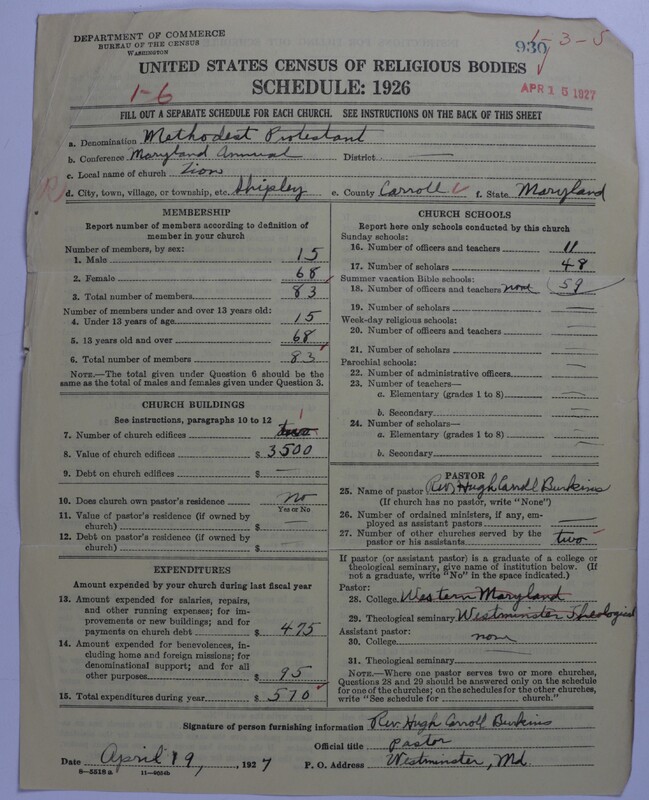 DEPARTMENT OF COMMERCE
BUREAU OF THE CENSUS
WASHINGTON
930
1-3-5
UNITED STATES CENSUS OF RELIGIOUS BODIES
SCHEDULE: 1926
1-6
APR 15 1927
FILL OUT A SEPARATE SCHEDULE FOR EACH CHURCH. SEE INSTRUCTIONS ON THE BACK OF THIS SHEET
a. Denomination Methodest Protestant
b. Conference Maryland Annual District —
c. Local name of church Zion
d. City, town, village, or township, etc. Shipley e. County Carroll f. State Maryland
MEMBERSHIP
Report number of members according to definition of
member in your church
Number of members, by sex:
1. Male 15
2. Female 68
3. Total number of members 83
Number of members under and over 13 years old:
4. Under 13 years of age 15
5. 13 years old and over 68
6. Total number of members 83
NOTE.—The total given under Question 6 should be
the same as the total of males and females given under Question 3.
CHURCH BUILDINGS
See instructions, paragraphs 10 to 12
7. Number of church edifices 1
8. Value of church edifices $ 3500
9. Debt on church edifices $ —
10. Does church own pastor's residence no
Yes or No
11. Value of pastor's residence (if owned by
church) $ —
12. Debt on pastor's residence (if owned by
church) $ —
EXPENDITURES
Amount expended by your church during last fiscal year
13. Amount expended for salaries, repairs,
and other running expenses; for im-
provements or new buildings; and for
payments on church debt $ 475
14. Amount expended for benevolences, in-
cluding home and foreign missions; for
denominational support; and for all
other purposes $ 95
15. Total expenditures during year $ 570
CHURCH SCHOOLS
Report here only schools conducted by this church
Sunday schools:
16. Number of officers and teachers 11
17. Number of scholars 48
Summer vacation Bible schools:
18. Number of officers and teachers none (59
19. Number of scholars —
Week-day religious schools:
20. Number of officers and teachers —
21. Number of scholars —
Parochial schools:
22. Number of administrative officers —
23. Number of teachers—
a. Elementary (grades 1 to 8) —
b. Secondary —
24. Number of scholars—
a. Elementary (grades 1 to 8) —
b. Secondary —
PASTOR
25. Name of pastor Rev. Hugh Carroll Burkins
(If church has no pastor, write "None")
26. Number of ordained ministers, if any, em-
ployed as assistant pastors —
27. Number of other churches served by the
pastor or his assistants two
If pastor (or assistant pastor) is a graduate of a college or
theological seminary, give name of institution below. (If
not a graduate, write "No" in the space indicated.)
Pastor:
28. College Western Maryland
29. Theological seminary Westminster Theological
Assistant pastor:
30. College none
31. Theological seminary
NOTE.—Where one pastor serves two or more churches,
Questions 28 and 29 should be answered only on the schedule
for one of the churches; on the schedules for the other churches,
write "See schedule for ______ church."
Signature of person furnishing information Rev. Hugh Carroll Burkins
Official title Pastor
Date April 19, 1927 P. O. Address Westminster, Md.
8-5518a